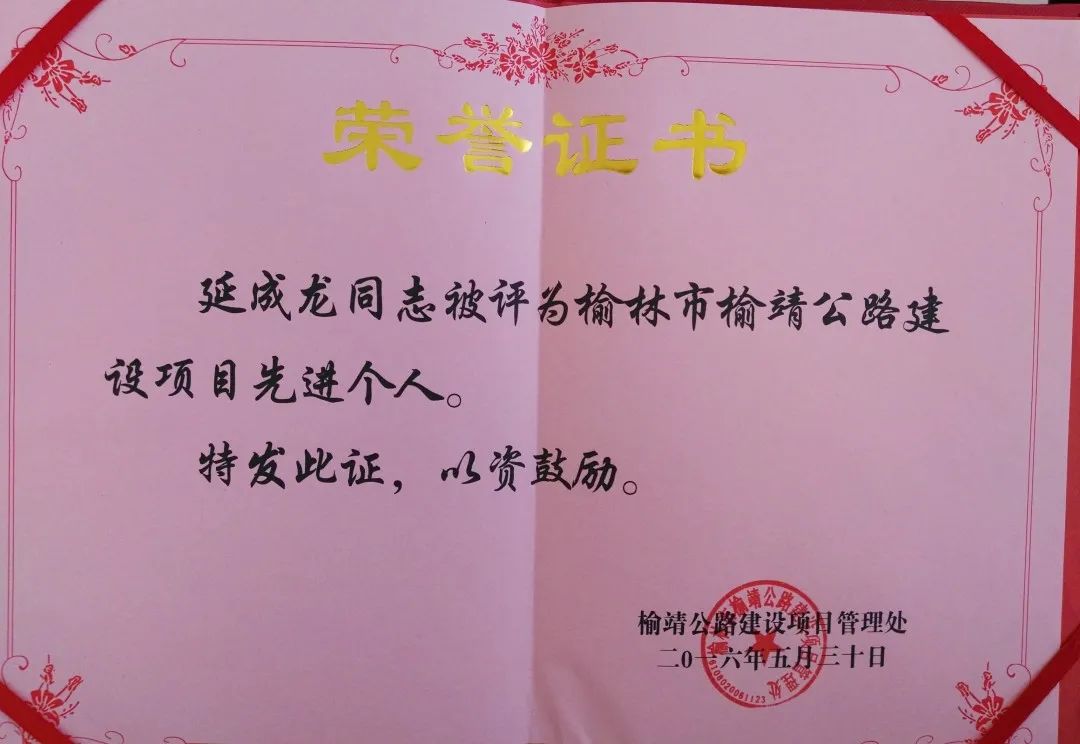 荣誉证书
延成龙同志被评为榆林市榆靖公路建
设项目先进个人。
特发此证，以资鼓励。
榆靖公路建设项目管理处
二0一六年五月三十日